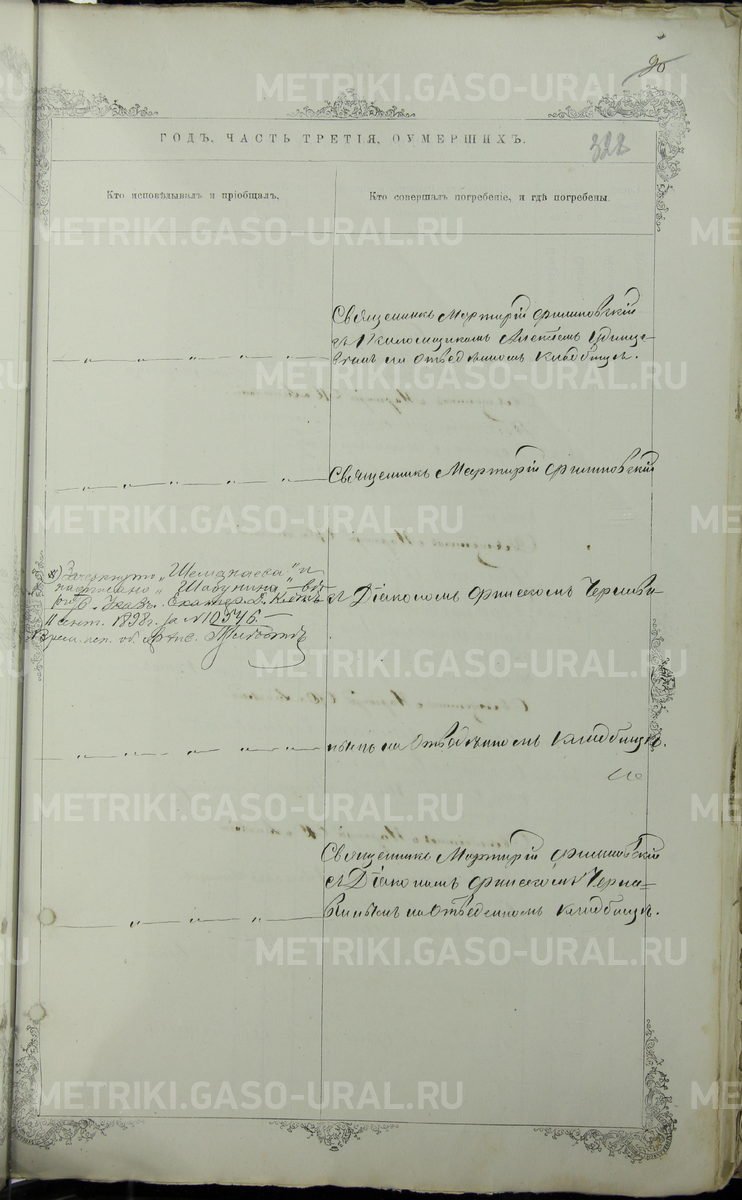 20
322
ГОДЪ, ЧАСТЬ ТРЕТІЯ, О УМЕРШИХЪ.
Кто исповѣдывалъ и пріобщалъ.
Кто совершалъ погребеніе, и гдѣ погребены.
Священникъ Мартирій Филиповскій
съ Псаломщикомъ Алексѣемъ
на отведенномъ кладбищѣ.
Священникъ Мартирій Филиповскій
Зачеркнуто „Шеманаева" и
написано „Шабунина"
Указ. Екатер. Д. К.
11 сент. 1898 г. за № 10546.
съ Діакономъ Финесомъ Черняви-
нымъ на отведенномъ кладбищѣ.
Священникъ Мартирій Филиповскій
съ Діакономъ Финесомъ Черня-
винымъ на отведенномъ кладбищѣ.
METRIKI.GASO-URAL.RU